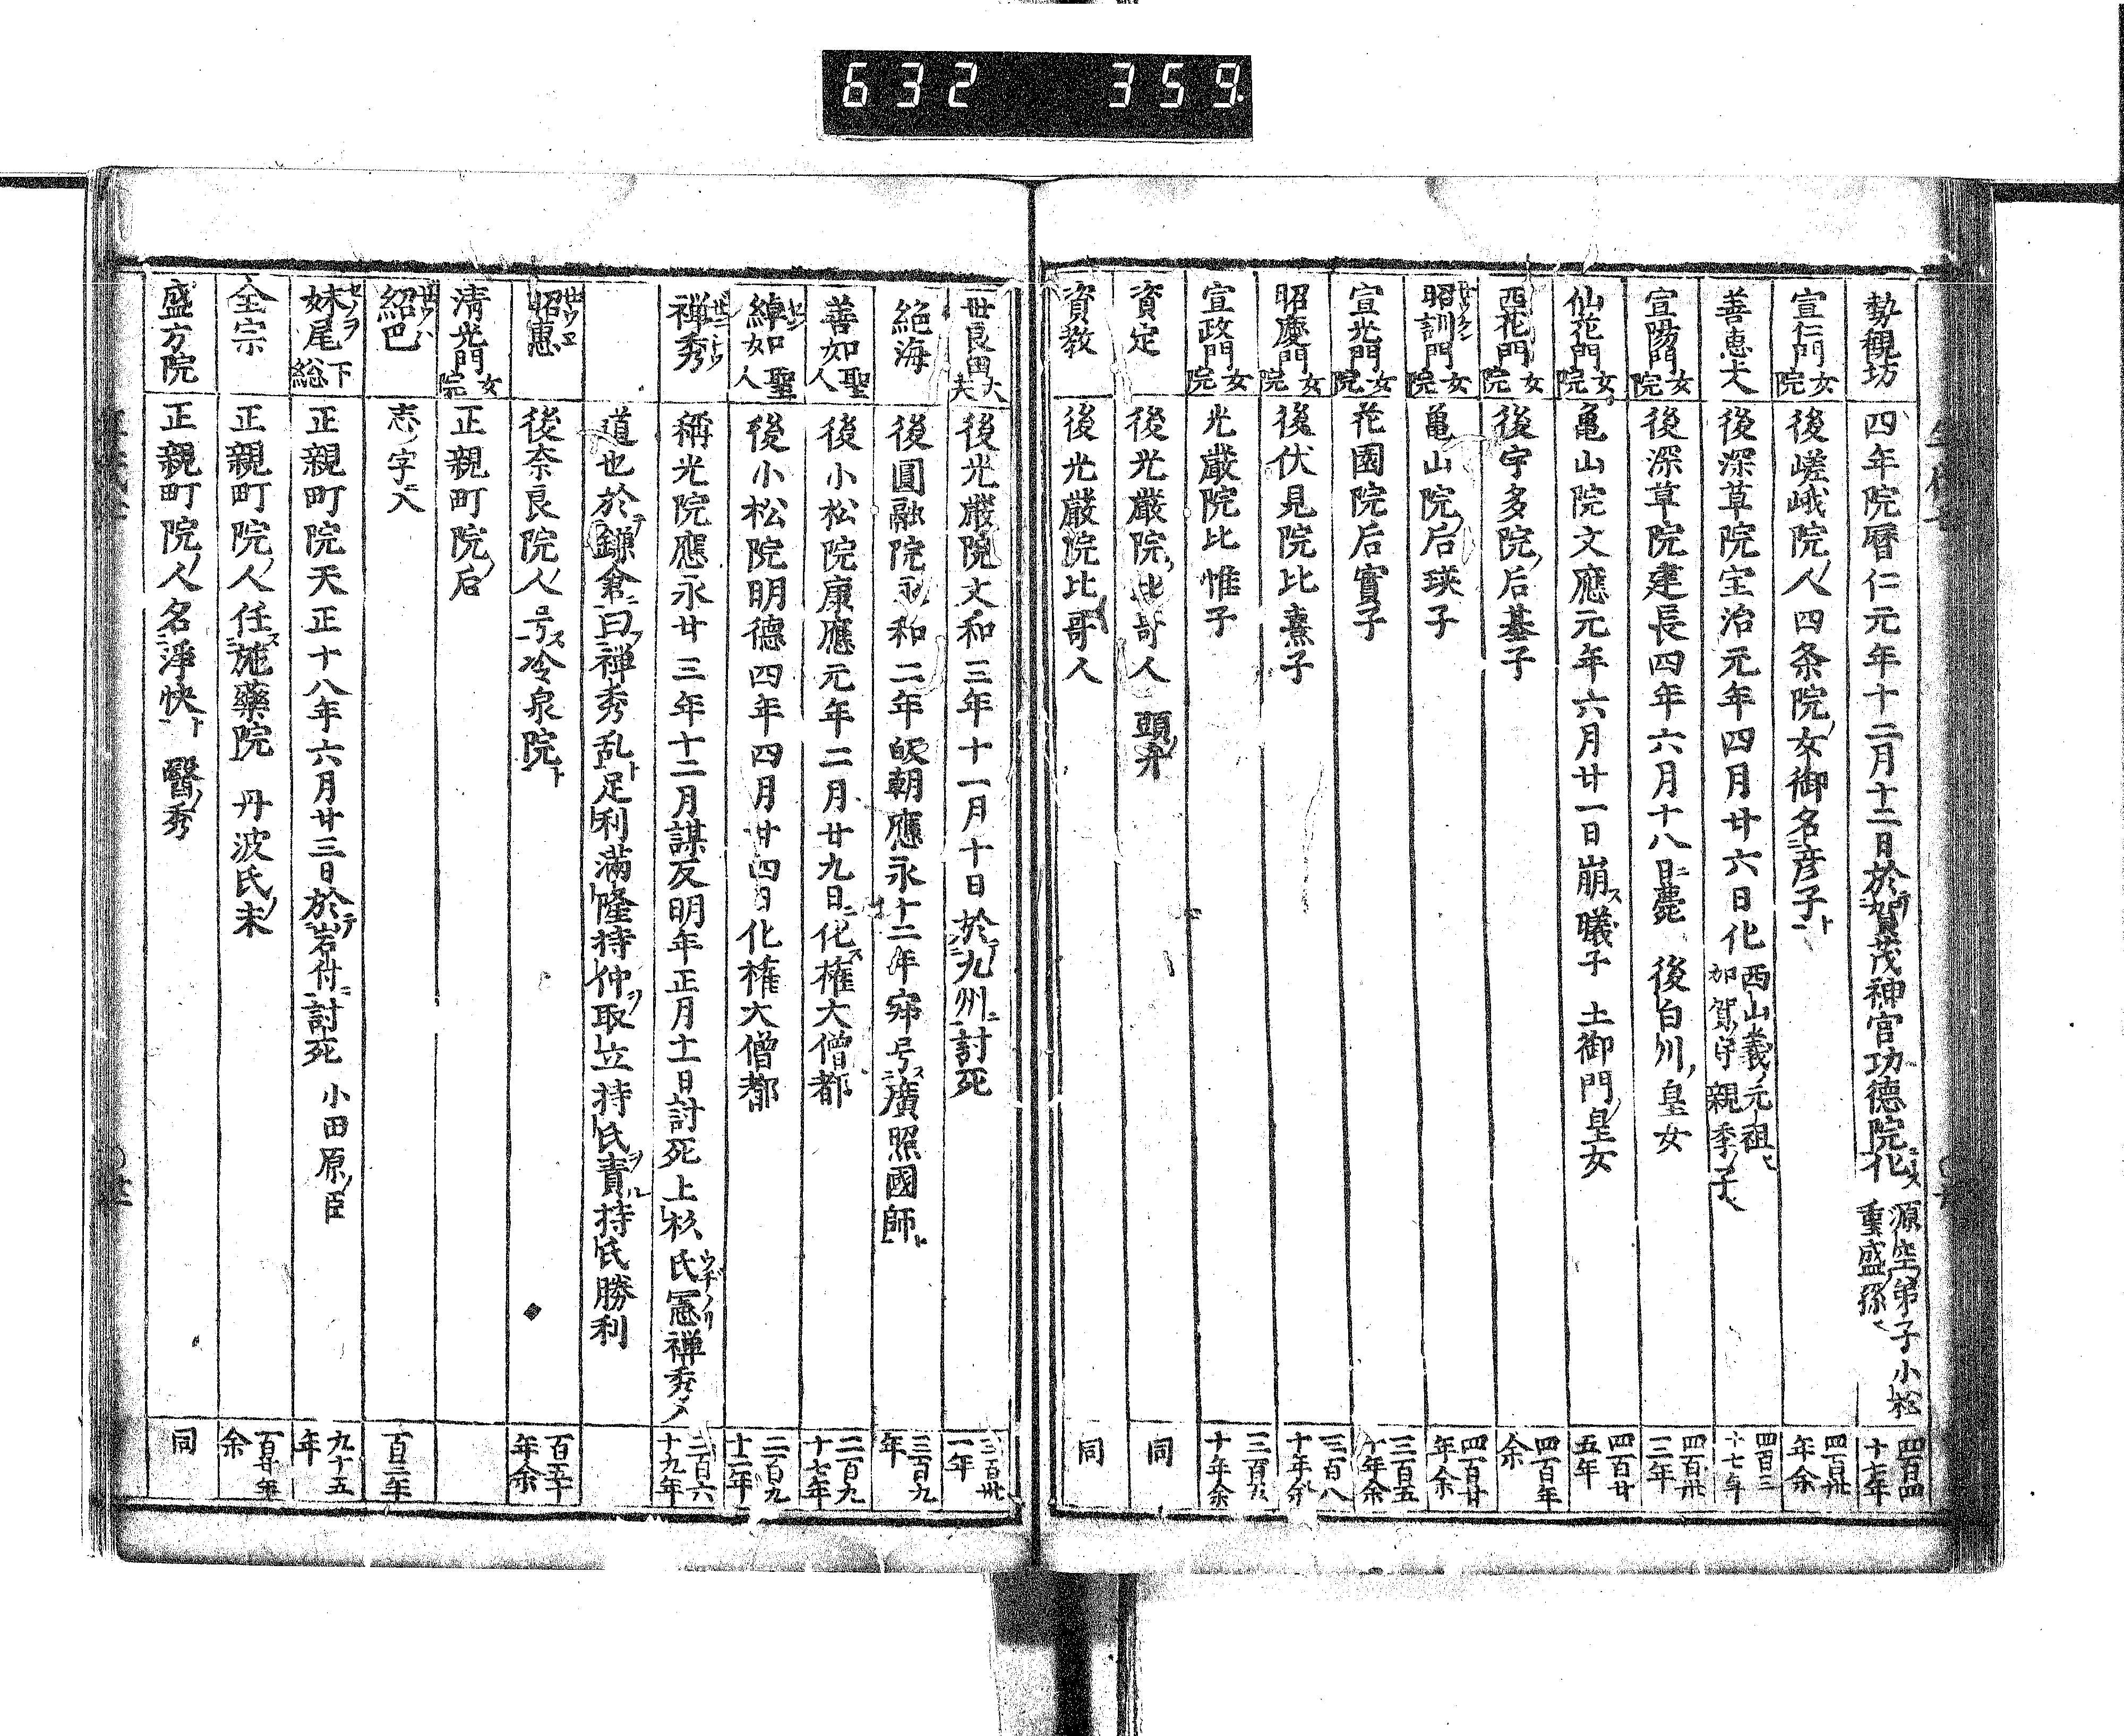 632 359
勢観坊 四年院暦仁元年十二月十二日於賀茂神官功徳院化ス 源空弟子小松重盛孫 四百四十七年
宣仁門院 女 後嵯峨院ノ人四条院ノ女御名彦子ト 四百卅年余
善恵大 後深草院宝治元年四月廿六日化 西山義ノ元祖 加賀守親季ノ子 四百三十七年
宣陽門院 女 後深草院建長四年六月十八日ニ薨 後白川ノ皇女 四百卅三年
仙花門院 女 亀山院文應元年六月廿一日崩ス曦子 土御門ノ皇女 四百廿五年
西花門院 女 後宇多院ノ后基子 四百年余
昭訓門院 女 亀山院ノ后瑛子 四百廿年余
宣光門院 女 花園院后實子 三百五十年余
昭慶門院 女 後伏見院比熹子 三百八十年余
宣政門院 女 光嚴院比惟子 三百五十年余
資定 後光嚴院ノ比哥人 頭弁 同
資教 後光嚴院比哥人 同
世良田 大夫 後光嚴院文和三年十一月十日於テ九州ニ討死 三百卅一年
絶海 後圓融院永和二年皈朝應永十二年寂号ス廣照國師ト 三百九年
善如 聖人 後小松院康應元年二月廿九日ニ化ス権大僧都 二百九十七年
綽如 聖人 後小松院明德四年四月廿四日化権大僧都 二百九十二年
禅秀 稱光院應永廿三年十二月謀反明年正月十一日討死上杉氏憲禅秀ノ 二百六十九年
道也於テ鎌倉ニ曰フ禅秀乱ト足利滿隆持仲ヲ取立持氏ヲ責ル持氏勝利
昭惠 後奈良院ノ人号ス冷泉院ト 百五十年余
清光門院 女 正親町院ノ后
紹巴 志ノ字ニ入 百三年
妹尾 下総 正親町院天正十八年六月廿三日於テ岩付ニ討死 小田原ノ臣 九十五年
全宗 正親町院ノ人任ス施藥院 丹波氏ノ末 百廿年余
盛方院 正親町院ノ人名淨快ト 醫ノ秀 同